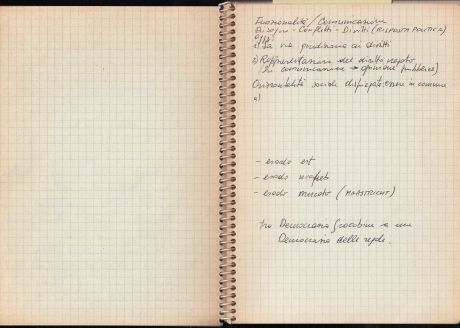 Funzionalità / Comunicazione
Bisogni - Conflitti - Diritti (RISPOSTA POLITICA)
oggi:
1) La via giudiziaria ai diritti
2) Rappresentazione del diritto negato
(In comunicazione → opinione pubblica)
Orizzontalità sociale dispiegata: essere in comune
a)
- esodo est
- esodo
- esodo mercato (MAASTRICHT)
tra Democrazia Giacobina e una
Democrazia delle regole.